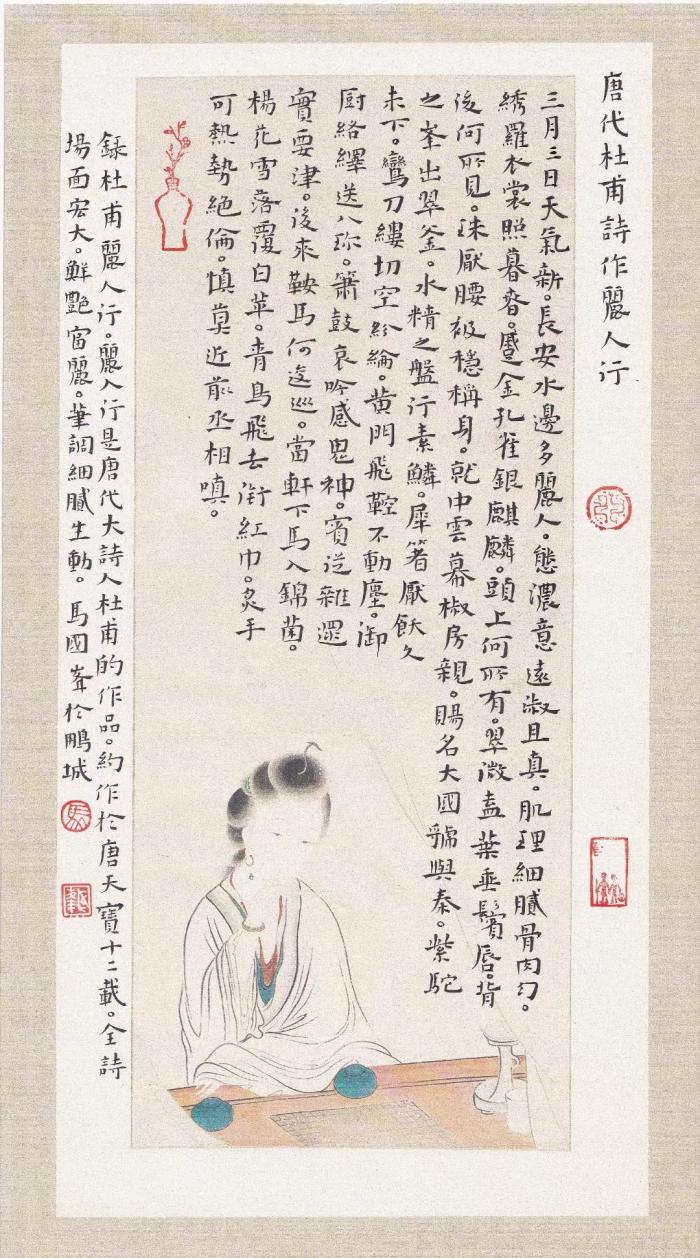 唐代杜甫詩作麗人行
三月三日天氣新。長安水邊多麗人。態濃意遠淑且真。肌理細膩骨肉勻。
綉羅衣裳照暮春。蹙金孔雀銀麒麟。頭上何所有。翠微盍葉垂鬢唇。背
後何所見。珠厭腰衱穩稱身。就中雲幕椒房親。賜名大國虢與秦。紫駝
之峯出翠釜。水精之盤行素鱗。犀箸厭飫久
未下。鸞刀縷切空紛綸。黃門飛鞚不動塵。御
厨絡繹送八珍。簫鼓哀吟感鬼神。賓從雜遝
實要津。後來鞍馬何逡巡。當軒下馬入錦茵。
楊花雪落覆白苹。青鳥飛去銜紅巾。炙手
可熱勢絕倫。慎莫近前丞相嗔。
錄杜甫麗人行。麗人行是唐代大詩人杜甫的作品。約作於唐天寶十二載。全詩
場面宏大。鮮艷富麗。筆調細膩生動。馬國峯於鵬城
馬